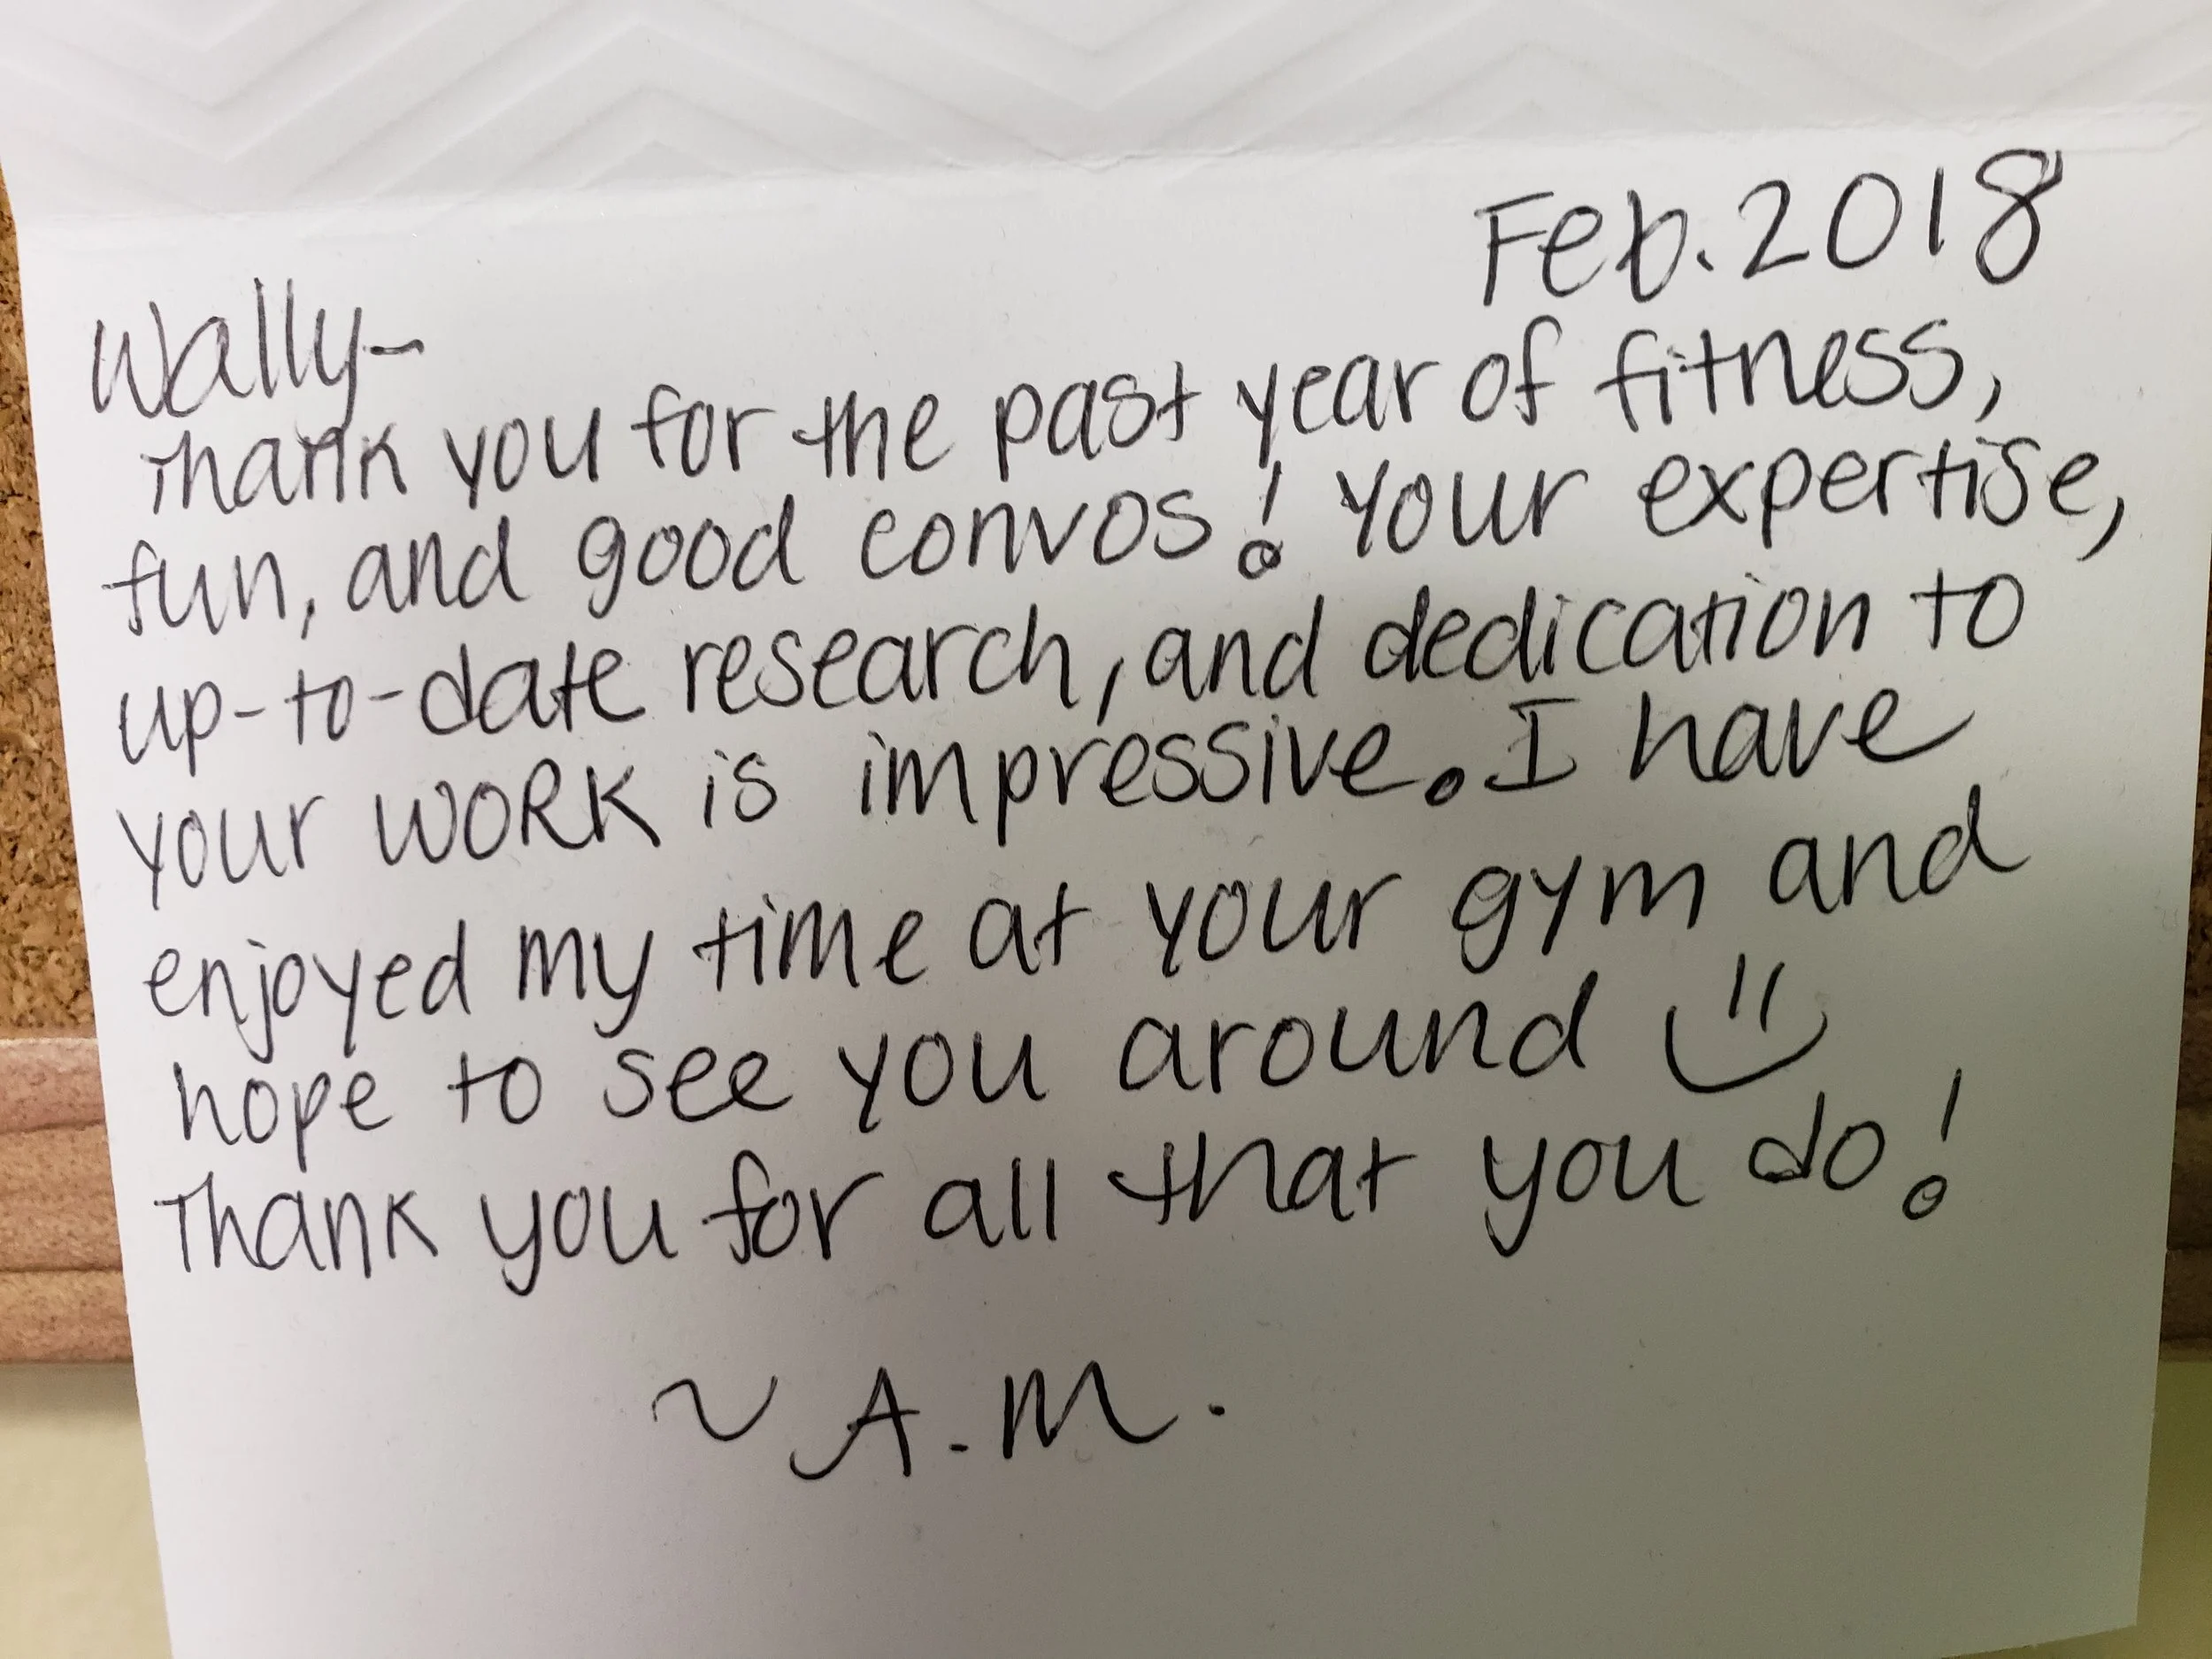 Feb. 2018
Wally-
Thank you for the past year of fitness,
fun, and good convos! Your expertise,
up-to-date research, and dedication to
your WORK is impressive. I have
enjoyed my time at your gym and
hope to see you around
Thank you for all that you do!
~ A.M.